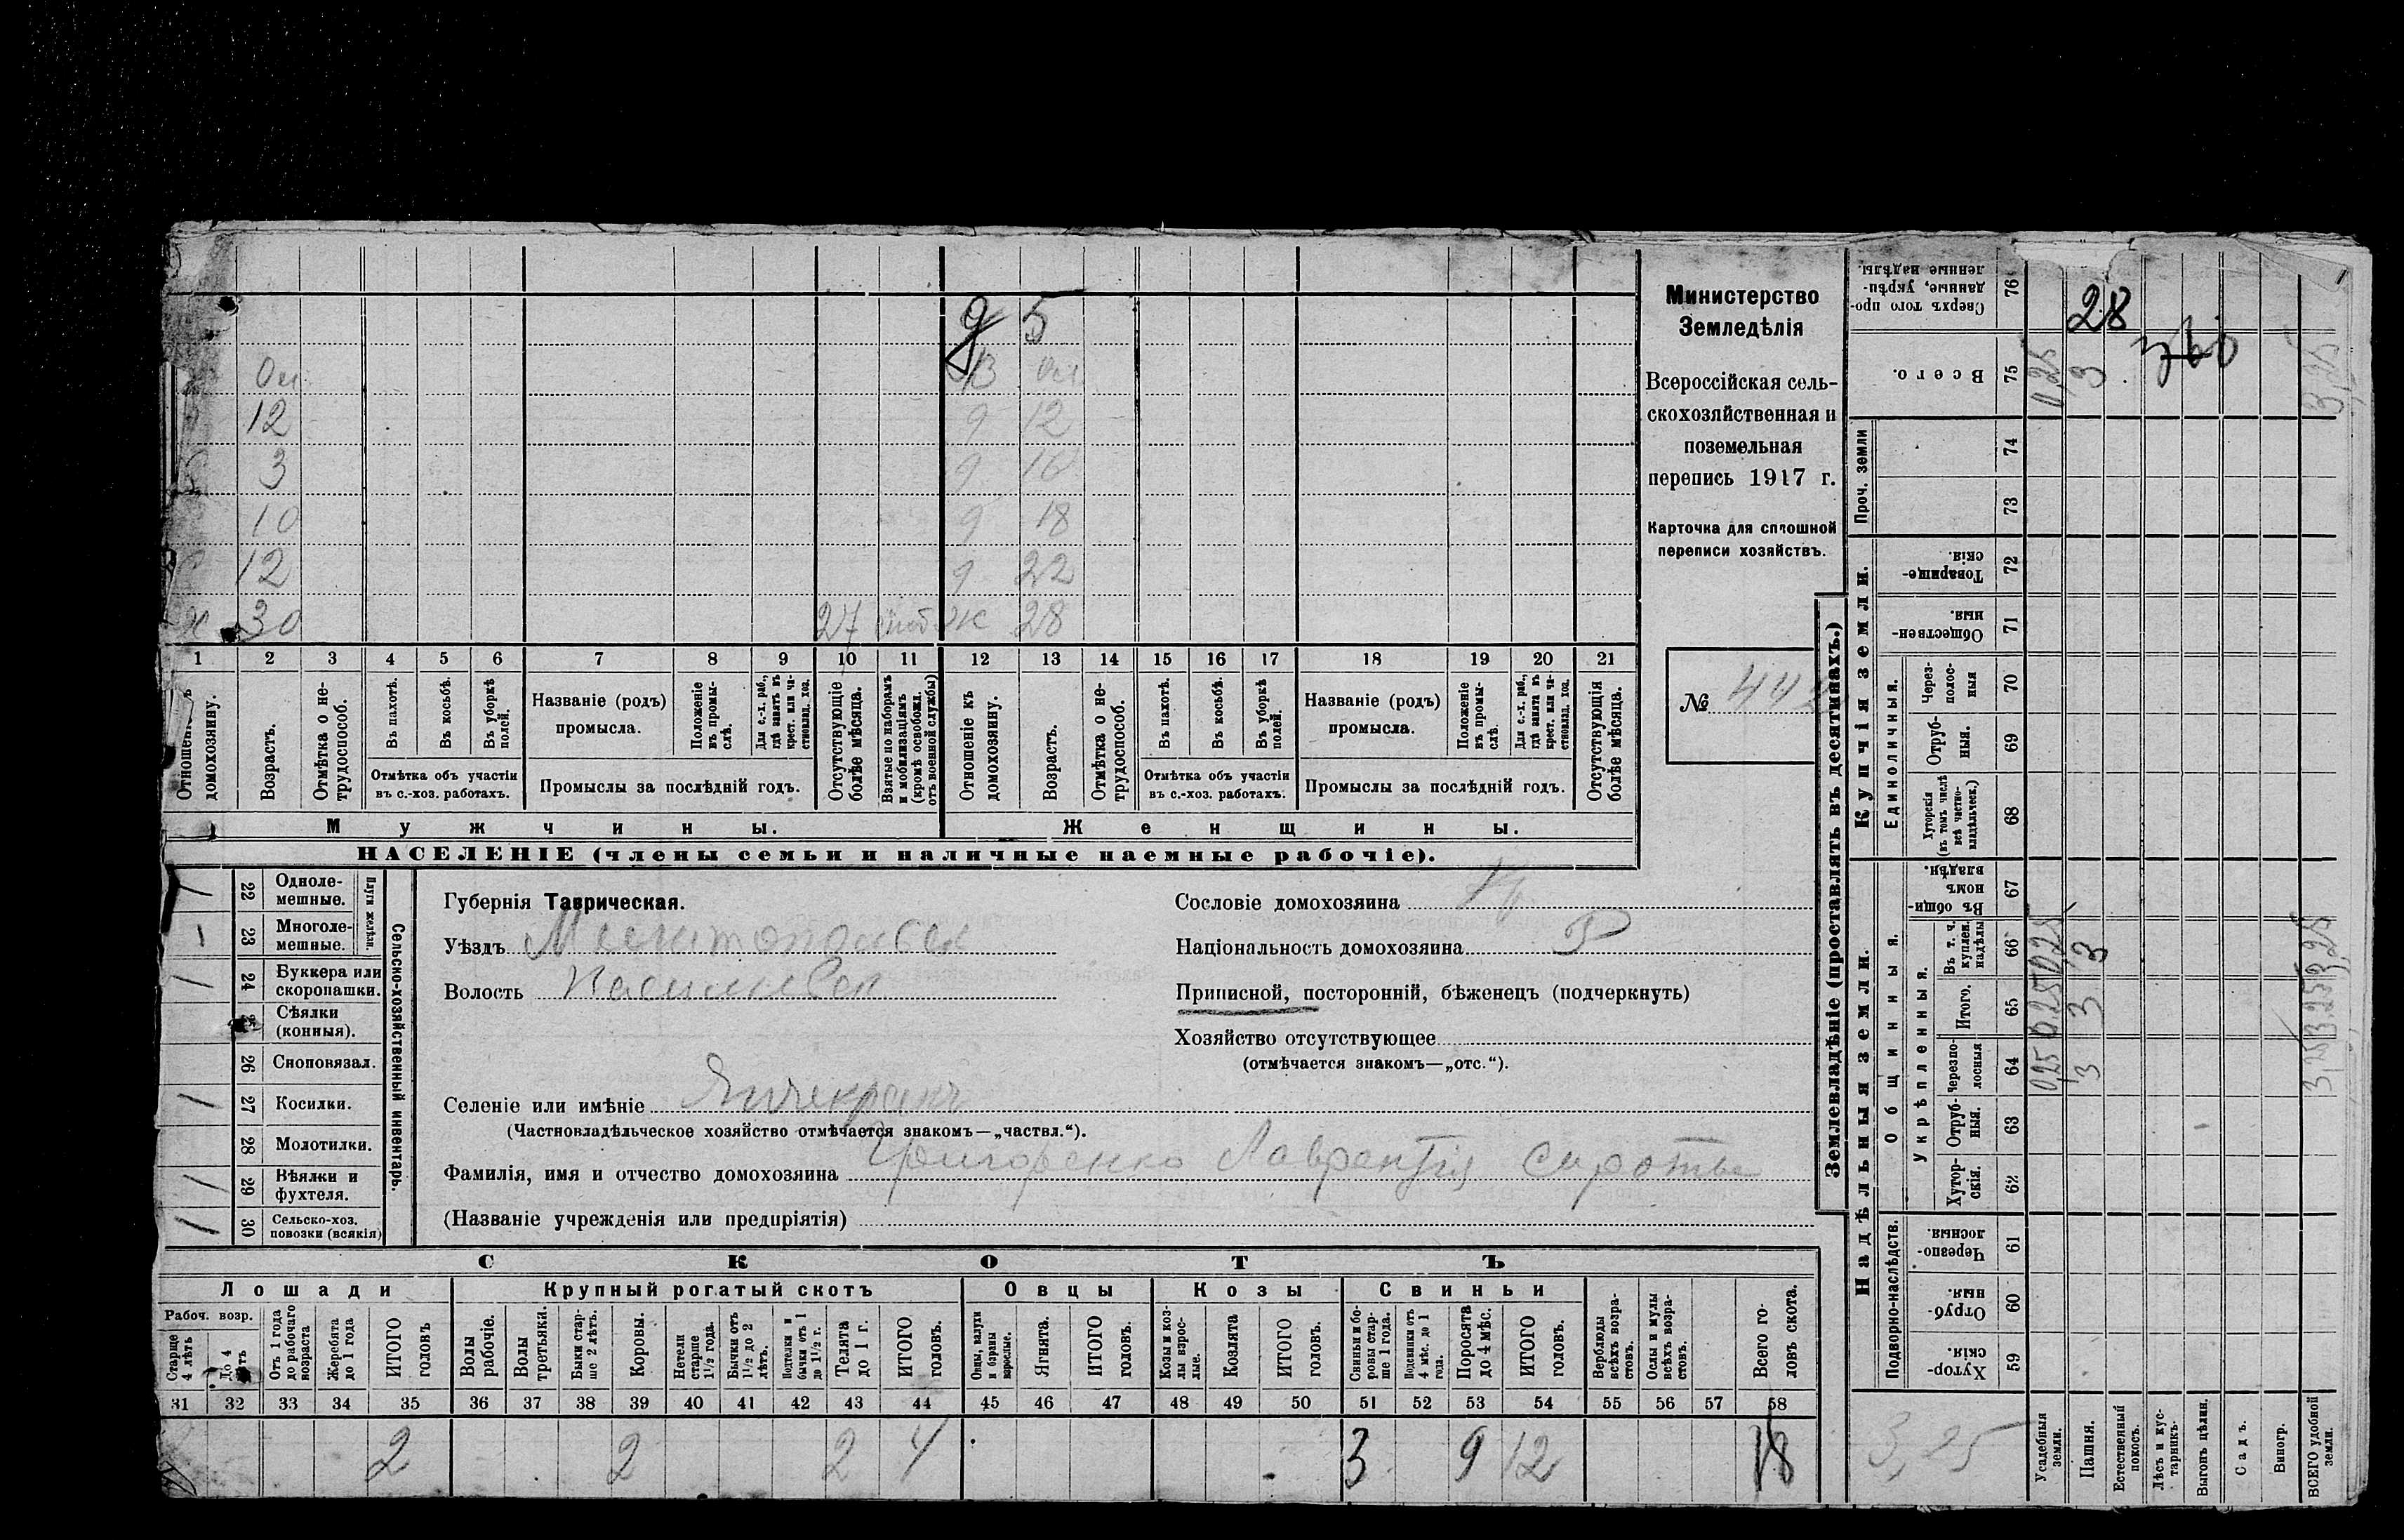 5
Ол В Ол
12 9 12
3 9 10
10 9 18
12 9 22
30 27 ж 28
1 2 3 4 5 6 7 8 9 10 11 12 13 14 15 16 17 18 19 20 21
Отношеніе къ домохозяину.
Возрастъ.
Отмѣтка о не-трудоспособ.
Въ пахотѣ.
Въ косьбѣ.
Въ уборкѣ полей.
Отмѣтка объ участіи
въ с.-хоз. работахъ.
Названіе (родъ)
промысла.
Положеніе въ промы-слѣ.
Для с.-х. раб., гдѣ занятъ въ крест. или ча-стновлад. хоз.
Промыслы за послѣдній годъ.
Отсутствующіе болѣе мѣсяца.
Взятые по наборамъ и мобилизаціямъ (кромѣ освобожд. отъ военной службы)
Отношеніе къ домохозяину.
Возрастъ.
Отмѣтка о не-трудоспособ.
Въ пахотѣ.
Въ косьбѣ.
Въ уборкѣ полей.
Отмѣтка объ участіи
въ с.-хоз. работахъ.
Названіе (родъ)
промысла.
Положеніе въ промы-слѣ.
Для с.-х. раб., гдѣ занята въ крест. или ча-стновлад. хоз.
Промыслы за послѣдній годъ.
Отсутствующія болѣе мѣсяца.
Мужчины.
Женщины.
НАСЕЛЕНІЕ (члены семьи и наличные наемные рабочіе).
Министерство
Земледѣлія
Всероссійская сель-
скохозяйственная и
поземельная
перепись 1917 г.
Карточка для сплошной
переписи хозяйствъ.
№ 442
Сельско-хозяйственный инвентарь.
Плуги желѣзн.
/ 22 Одноле-мешные.
/ 23 Многоле-мешные.
/ 24 Буккера или скоропашки.
Сѣялки (конныя).
26 Сноповязал.
/ 27 Косилки.
28 Молотилки.
/ 29 Вѣялки и фухтеля.
/ 30 Сельско-хоз. повозки (всякія)
Губернія Таврическая.
Уѣздъ Мелитопольск
Волость Васильевск
Селеніе или имѣніе Янчекракъ
(Частновладѣльческое хозяйство отмѣчается знакомъ—„частвл.“).
Фамилія, имя и отчество домохозяина Григоренко Лаврентія Сироты
(Названіе учрежденія или предпріятія)
Сословіе домохозяина
Національность домохозяина Р
Приписной, посторонній, бѣженецъ (подчеркнуть)
Хозяйство отсутствующее
(отмѣчается знакомъ—„отс.“).
СКОТЪ
Лошади
Крупный рогатый скотъ
Овцы
Козы
Свиньи
Рабоч. возр.
Старше 4 лѣтъ
До 4 лѣтъ
Отъ 1 года до рабочаго возраста
Жеребята до 1 года
ИТОГО головъ
Волы рабочіе.
Волы третьяки.
Быки стар-ше 2 лѣтъ.
Коровы.
Нетели старше 1½ года.
Бычки отъ 1½ до 2 лѣтъ.
Подтелки и бычки отъ 1 до 1½ г.
Телята до 1 г.
ИТОГО головъ.
Овцы, валухи и бараны взрослые.
Ягнята.
ИТОГО головъ.
Козы и коз-лы взрос-лые.
Козлята
ИТОГО головъ.
Свиньи и бо-ровы стар-ше 1 года.
Подсвинки отъ 4 мѣс. до 1 года.
Поросята до 4 мѣс.
ИТОГО головъ.
Верблюды всѣхъ возра-стовъ.
Ослы и мулы всѣхъ возра-стовъ.
Всего го-ловъ скота.
31 32 33 34 35 36 37 38 39 40 41 42 43 44 45 46 47 48 49 50 51 52 53 54 55 56 57 58
2 2 2 4 3 9 12 18
Землевладѣніе (проставлять въ десятинахъ.)
Надѣльныя земли.
Купчія земли.
Проч. земли
Подворно-наслѣдств.
Общинныя.
Укрѣпленныя.
Единоличныя.
Хутор-скія. 59
Отруб-ныя. 60
Черезпо-лосныя 61
Хутор-скія. 62
Отруб-ныя. 63
Черезпо-лосныя 64
Итого. 65
Въ т. ч. куплен. надѣлы 66
Въ общин-номъ владѣн. 67
Хуторскія (въ томъ числѣ всѣ частно-владѣльческ.) 68
Отруб-ныя. 69
Через-полос-ныя 70
Обществен-ныя. 71
Товарище-скія. 72
73
74
Всего. 75
Сверхъ того про-данные, укрѣп-ленные надѣлы. 76
Усадебныя земли. 0,25 0,25 0,25 0,25
Пашня. 3 3 3 3
Естественный покосъ.
Лѣсъ и кус-тарникъ.
Выгонъ цѣлин.
Садъ.
Виногр.
ВСЕГО удобной земли. 3,25 3,25 3,25 3,25
28
3,25